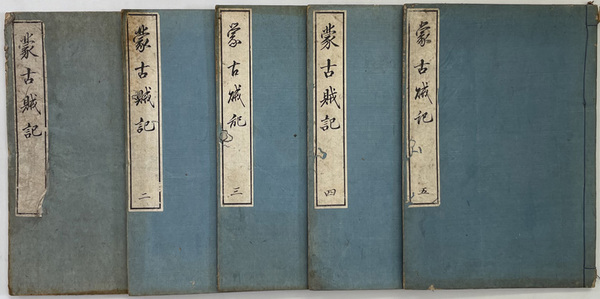 蒙古賊記
蒙古賊記 二
蒙古賊記 三
蒙古賊記 四
蒙古賊記 五